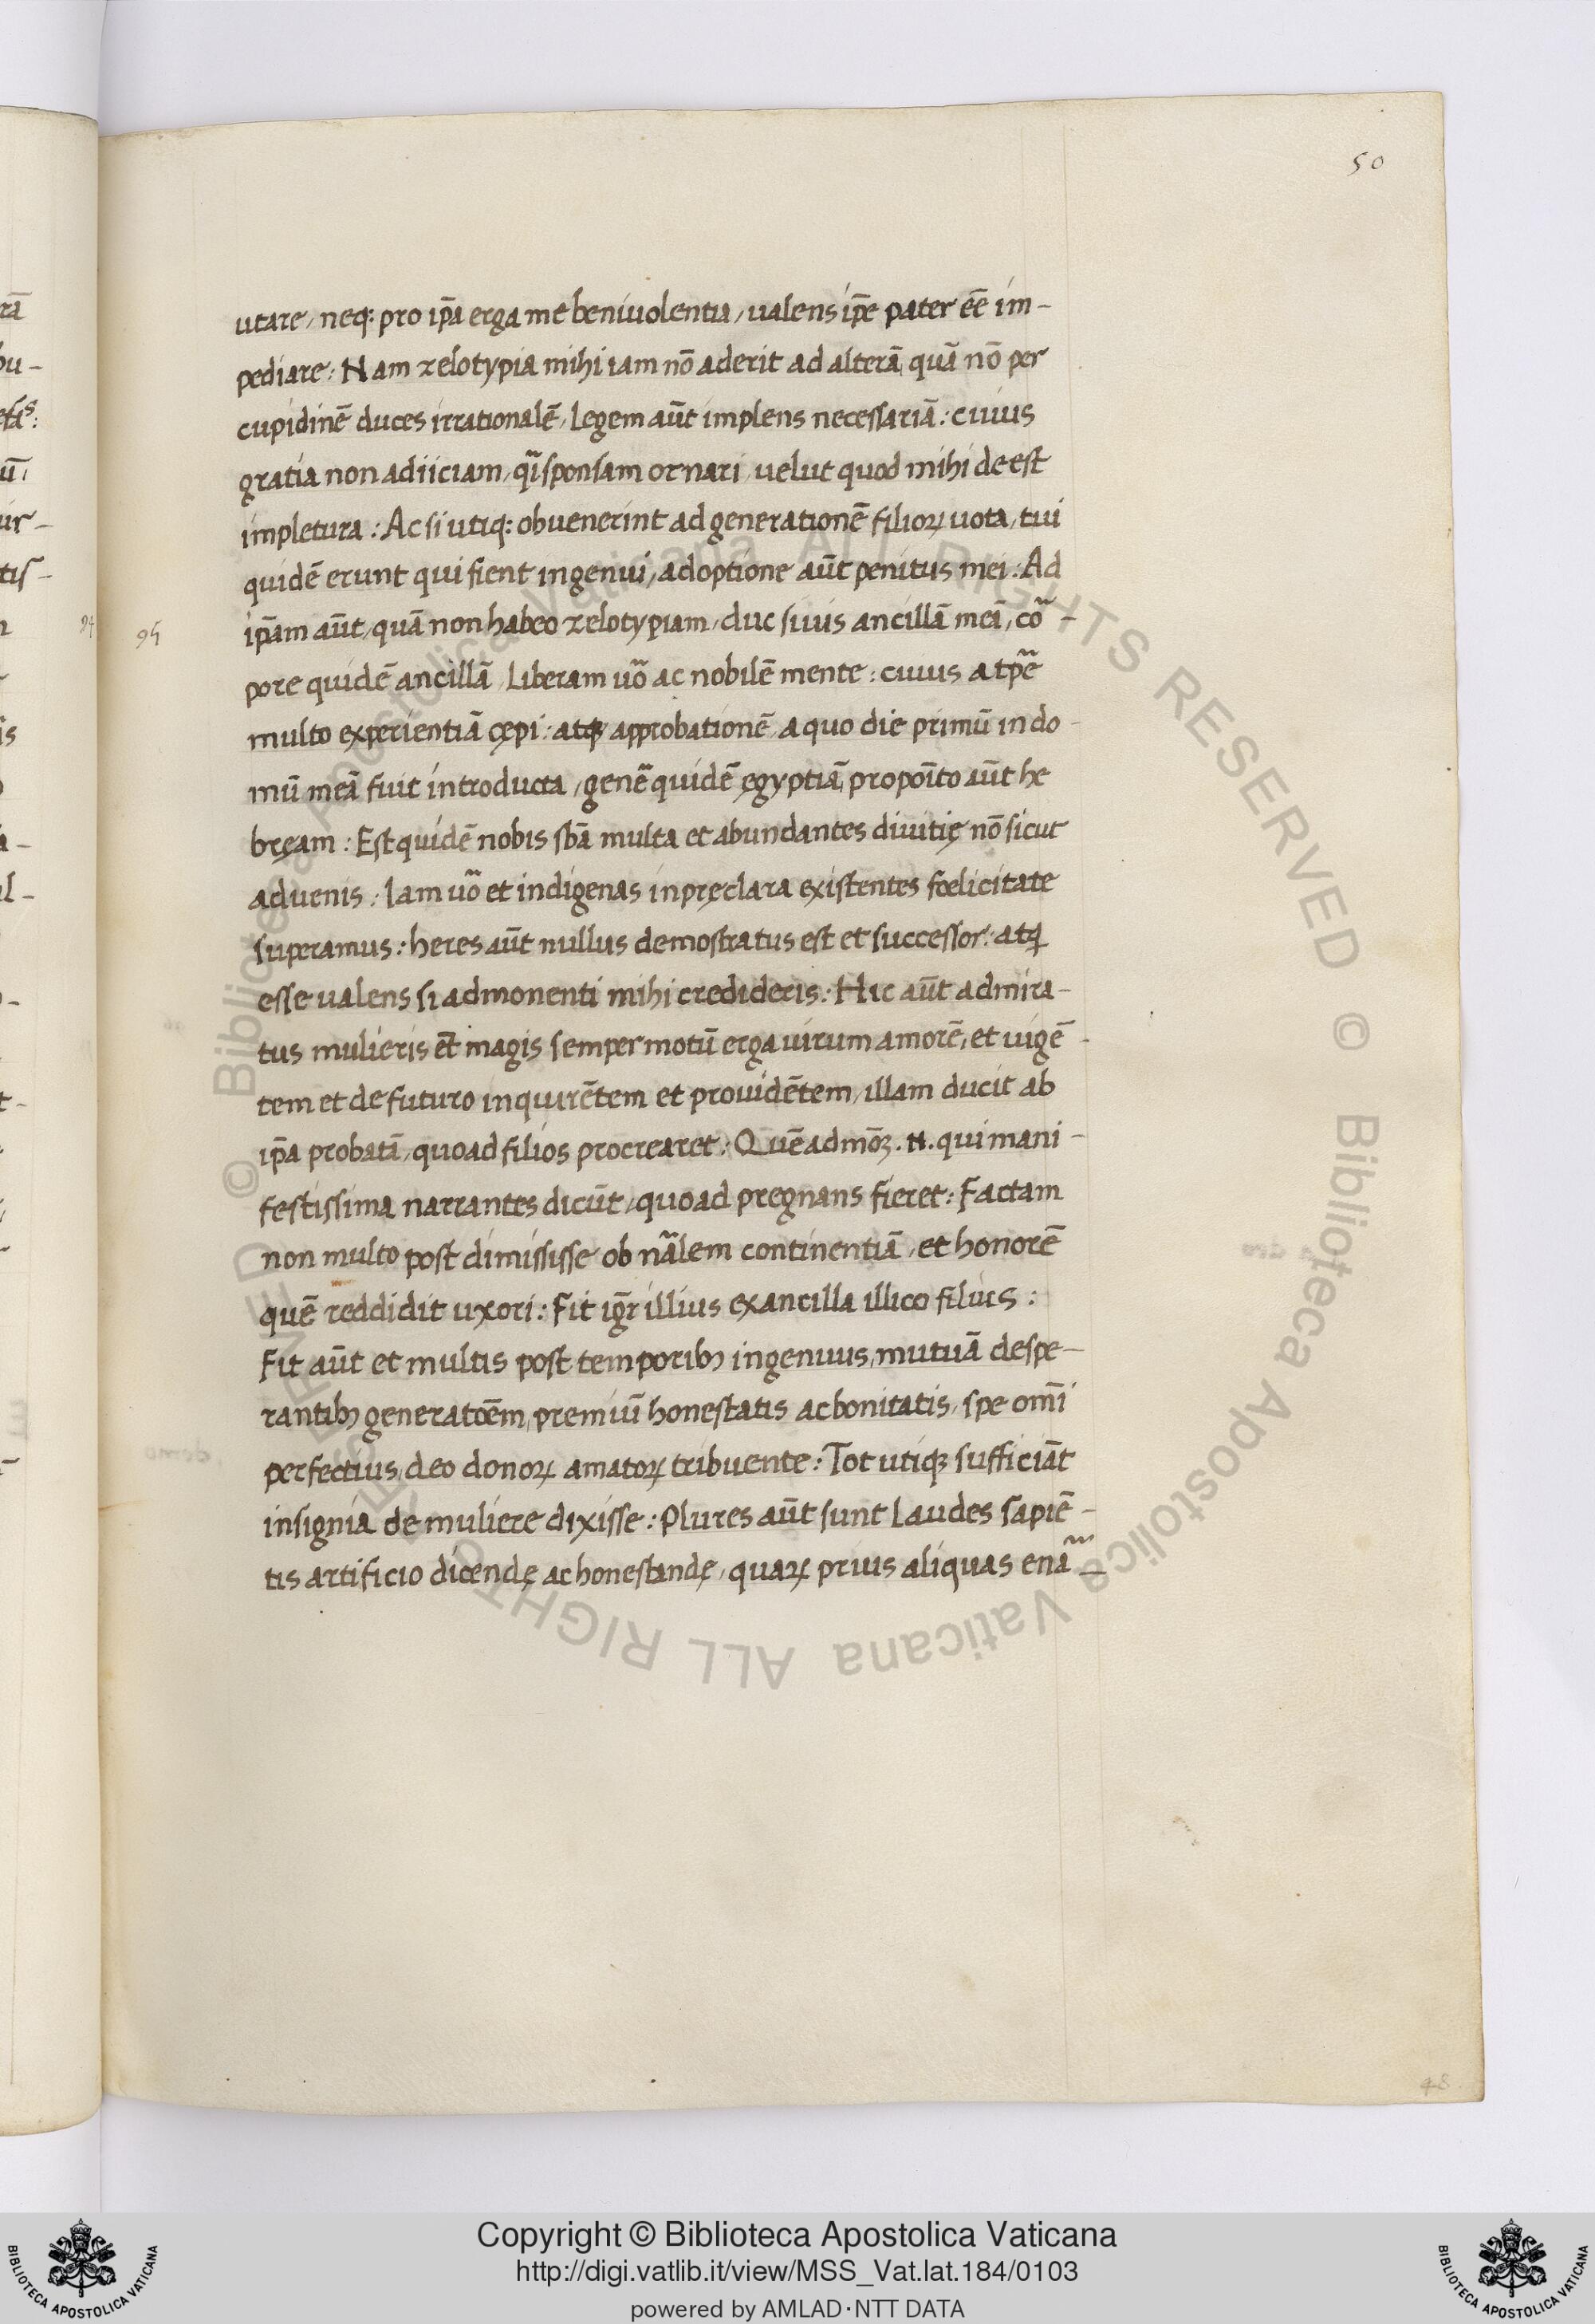 50
utare, neq: pro ip̄a erga me beniuolentia, ualens ip̄e pater eē im-
pediare: Nam zelotypia mihi iam nō aderit ad alterā, quā nō per
cupidinē duces irrationalē, legem aūt implens necessariā: cuius
gratia non adiiciam, qͣ̄ sponsam ornari, uelut quod mihi deest
impletura: Ac si utiq: obuenerint ad generationē filioꝝ uota, tui
quidē erunt qui fient ingenui, adoptione aūt penitus mei: Ad
95 ip̄am aūt, quā non habeo zelotypiam, duc siuis ancillā meā, cor̄-
pore quidē ancillā, Liberam uō ac nobilē mente: cuius a tp̄e
multo experientiā cępi: atqꝫ approbationē, a quo die primū in do-
mū meā fuit introducta, genē quidē ęgyptiā, propoīto aūt he
bręam: Est quidē nobis sbā multa et abundantes diuitię nō sicut
aduenis: Iam uō et indigenas in pręclara existentes fœlicitate
superamus: heres aūt nullus demostratus est et successor: atꝗ
esse ualens si admonenti mihi credideris: Hic aūt admira-
tus mulieris et̄ magis semper motū erga uirum amorē, et uigē-
tem et de futuro inquirētem et prouidētem, illam ducit ab
ip̄a probatā, quoad filios procrearet: Quēadmōꝫ .N. qui mani-
festissima narrantes dicūt, quoad pregnans fieret: Factam
non multo post dimississe ob nālem continentiā, et honorē
quē reddidit uxori: Fit iḡr illius ex ancilla illico filius:
Fit aūt et multis post temporibꝫ ingenuus, mutuā despe-
rantibꝫ generatōem, premiū honestatis ac bonitatis, spe omī
perfectius, deo donoꝝ amatoꝝ tribuente: Tot utiqꝫ sufficiāt
insignia de muliere dixisse: Plures aūt sunt Laudes sapiē-
tis artificio dicendę ac honestandę, quaꝝ prius aliquas enā-
48
Copyright © Biblioteca Apostolica Vaticana
http://digi.vatlib.it/view/MSS_Vat.lat.184/0103
powered by AMLAD·NTT DATA